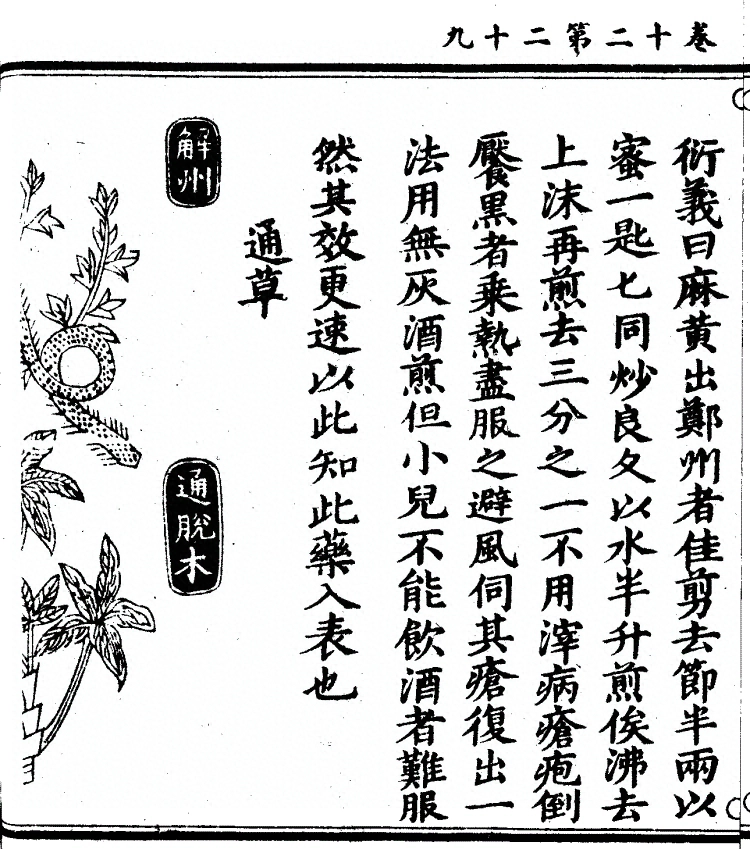 卷十二第二十九
衍義曰麻黃出鄭州者佳剪去節半兩以
蜜一匙匕同炒良久以水半升煎俟沸去
上沫再煎去三分之一不用滓病瘡疱倒
黶黑者乘熱盡服之避風伺其瘡復出一
法用無灰酒煎但小兒不能飲酒者難服
然其效更速以此知此藥入表也
通草
解州
通脫木